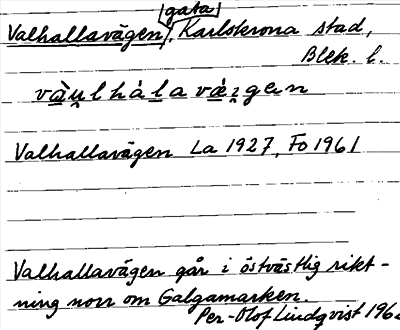 gata
Valhallavägen, Karlskrona stad,
Blek. l.
vàu̯lhàlavä́ɪ̯gen
Valhallavägen La 1927, Fo 1961
Valhallavägen går i östvästlig rikt-
ning norr om Galgamarken.
Per-Olof Lindqvist 196